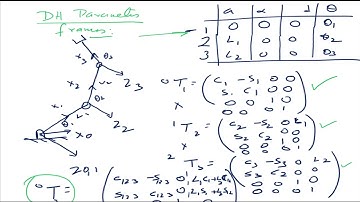 DH Parameters
frames:
a α d θ
1 0 0 0 θ1
2 L1 0 0 θ2
3 L2 0 0 θ3
X3 θ3
Z3
X2
θ2
Z2
X1
L1
θ1
X0
Z0,1
0T1 = (C1 -S1 0 0
S1 C1 0 0
0 0 1 0
0 0 0 1)
x
1T2 = (C2 -S2 0 L1
S2 C2 0 0
0 0 1 0
0 0 0 1)
x
2T3 = (C3 -S3 0 L2
S3 C3 0 0
0 0 1 0
0 0 0 1)
0T =
C123 -S123 0
S123 C123 0